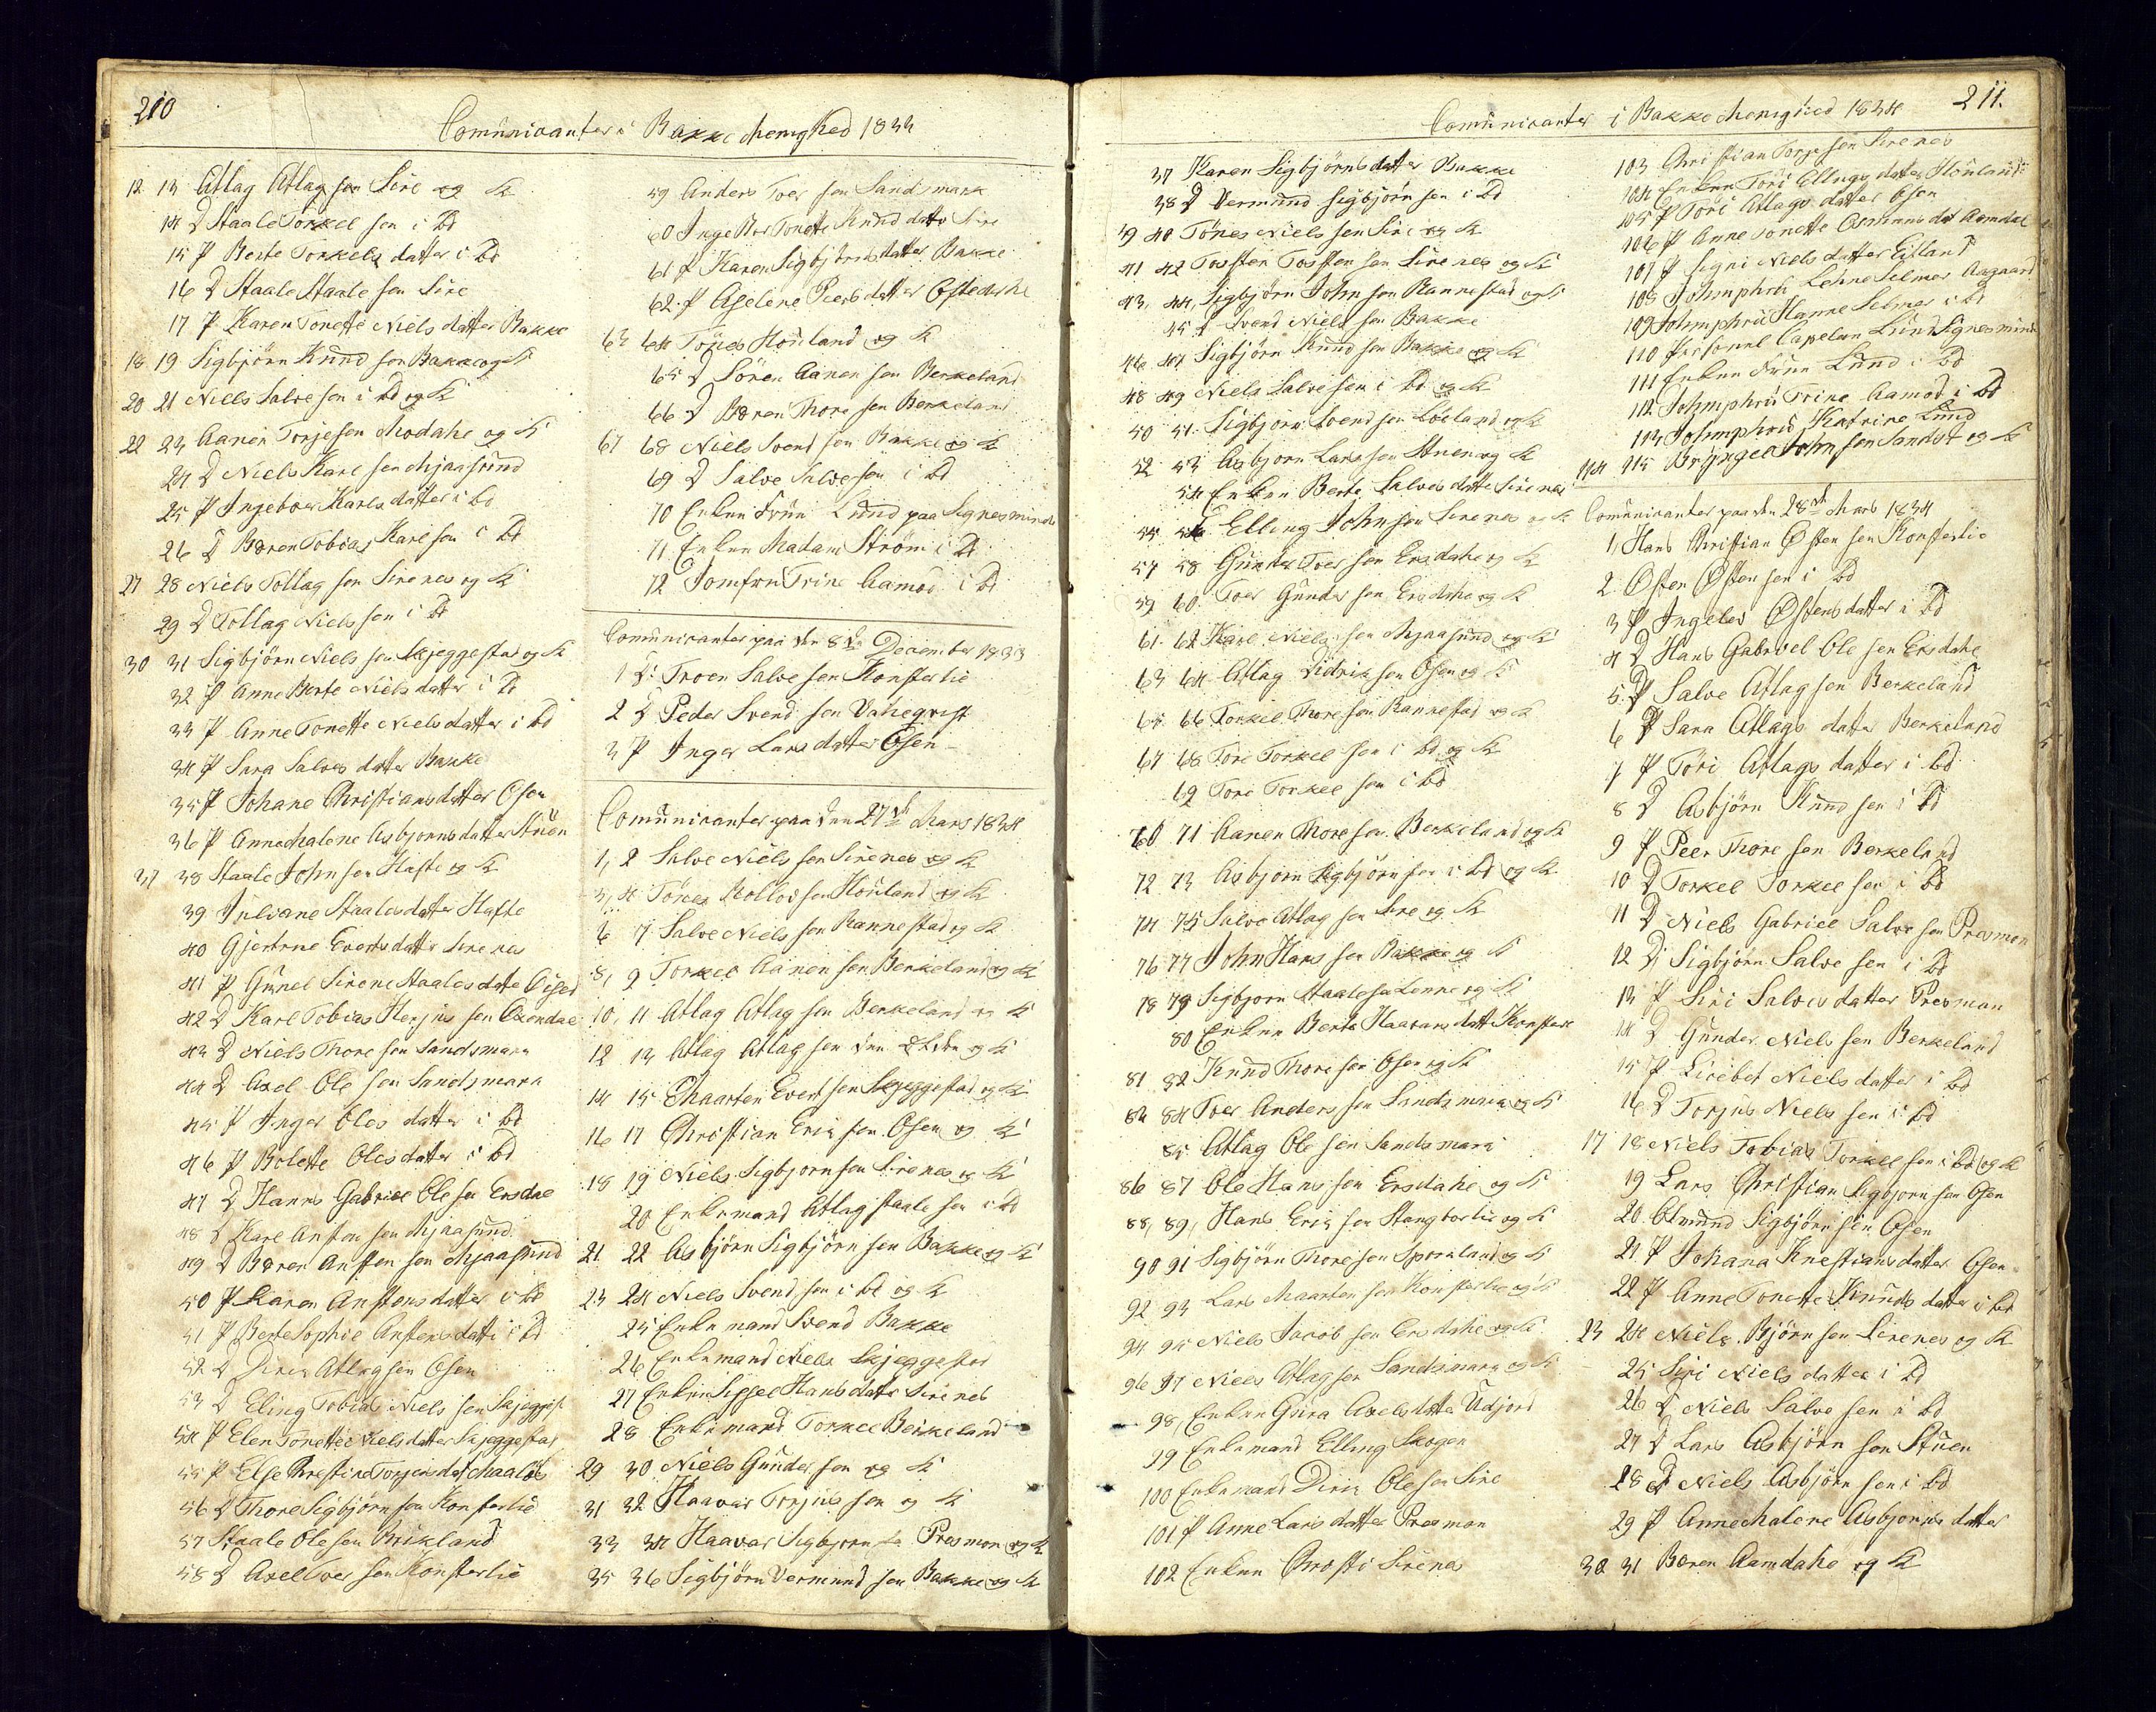 210
Comunicanter i Bakke Menighed 1833
12 13 Atlag Atlag sen Sire og K
14 D Staale Torkel sen i bd
15 P Berte Torkels datter i bd
16 D Staale Staale sen Sire
17 P Karen Tonette Niels datter Bakke
18 19 Sigbjörn Knud sen Bakke og K
20 21 Niels Salve sen i bd og K
22 23 Aanen Torjesen Modahe og K
24 D Niels Karl sen Mjaasund
25 P Ingeboer Karlsdatter i bd
26 D Bæren Tobias Karl sen i bd
27 28 Niels Tollag sen Sirenes og K
29 D Tollag Niels sen i bd
30 31 Sigbjörn Niels sen Skjeggestad og K
32 P Anne Berte Niels datter i bd
33 P Anne Tonette Niels datter i bd
34 P Sara Salves datter Bakke
35 P Johane Christiansdatter Osen
36 P Anne Malene Asbjornsdatter Stuen
37 38 Staale John sen Hafte og K
39 Juliane Staales datter Hafte
40 Gjertrue Evertsdatter Sirenes
41 P Gunel Sirene Staales datte
42 D Karl Tobias Herjus sen
43 D Niels Thore sen Sandsmark
44 D Axel Ole sen Sandsmark
45 P Inger Oles datter i bd
46 P Bolette Olesdatter i bd
47 D Hanns Gabriel Ole sen Ersdal
48 D Karl Ansten sen Mjaasund
49 D Bæren Ansten sen Mjaasund
50 P Karen Anstensdatter i bd
51 P Berte Sophie Anstensdatte i bd
52 D Dirik Atlagsen Osen
53 D Eling Tobias Niels sen Skjeggest
54 P Elen Tonette Nielsdatter Skjeggestad
55 P Else Krestine Torjesdat
56 D Thore Sigbjörn sen Konsterlie
57 Staale Ole sen Birkland
58 D Axel Toer sen Konsterlie
59 Anders Toer sen Sandsmark
60 Ingeboer Tonette Knud datter Sire
61 P Karen Sigbjörns datter Bakke
62 P Aselene Peersdatter
63 64 Tönes Houland og K
65 D Sören Aanen sen Berkeland
66 D Bæren Thore sen Berkeland
67 68 Niels Svend sen Bakke og K
69 D Salve Salvesen i bd
70 Enken Frue Lund paa Signesminde
71 Enken Madam Ström i bd
72 Jomfru Trine Aamod i bd
Comunicanter paa den 8de December 1833
1 D Troen Salve sen Konsterlie
2 D Peder Svend sen
3 P Inger Lars datter Osen
Comunicanter paa den 27de Mars 1834
1, 2 Salve Niels sen Sirenes og K
3, 4 Tönes Rollof sen Houland og K
6 7 Salve Niels sen Rannestad og K
8, 9 Torkel Aanen sen Berkeland og K
10, 11 Atlag Atlag sen Berkeland og K
12 13 Atlag Atlag sen den og K
14 15 Maarten Evert sen Skjeggestad og K
16 17 Christian Erik sen Osen og K
18 19 Niels Sigbjorn sen Sirenes og K
20 Enkemand Atlag Staale sen i bd
21 22 Asbjörn Sigbjörn sen Bakke og K
23 24 Niels Svend sen i bd og K
25 Enkemand Svend Bakke
26 Enkemand Niels Skjeggestad
27 Enken Sissel Hans datter Sirenes
28 Enkemand Torkel Berkeland
29 30 Niels Gunder sen og K
31 32 Haavar Torjus sen og K
33 34 Haavar Sigbjorn sen Presmon og K
35 36 Sigbjörn Vermund sen Bakke og K
211.
Comunicanter i Bakke Menighed 1834
37 Karen Sigbjörnsdatter Bakke
38 D Vermund Sigbjörn sen i bd
39 40 Tönes Niels sen Sire og K
41 42 Tosten Tosten sen Sirenes og K
43, 44, Sigbjörn John sen Rannestad og K
45 D Svend Niels sen Bakke
46 47 Sigbjörn Knud sen Bakke og K
48 49 Niels Salve sen i bd og K
50 51 Sigbjorn Svend sen og K
52 53 Asbjorn Lars sen Stuen og K
54 Enken Berte Salves datte Sirenes
55 56 Elling John sen Sirenes og K
57 58 Gunder Toer sen Ersdahe og K
59 60 Toer Gunder sen Ersdahe og K
61 62 Karl Niels sen Mjaasund og K
63 64 Atlag Didrik sen Osen og K
65 66 Torkel Thore sen Rannestad og K
67 68 Tore Torkel sen i bd og K
69 Tore Torkel sen i bd
70 71 Aanen Thore sen Berkeland og K
72 73 Asbjorn Sigbjörn sen i bd og K
74 75 Salve Atlag sen Sire og K
76 77 John Hans sen Bakke og K
78 79 Sigbjorn Staale sen Lenne og K
80 Enken Berte Haavars datt Konsterl
81 82 Knud Thore sen Osen og K
83 84 Toer Anders sen Sandsmark og K
85 Atlag Ole sen Sandsmark
86 87 Ole Hans sen Ersdahe og K
88, 89, Hans Erik sen Stangborlie og K
90 91 Sigbjörn Thore sen og K
92 93 Lars Maarten sen Konsterlie og K
94 95 Niels Jacob sen Ersdahe og K
96 97 Niels Atlag sen Sandsmark og K
98, Enken Gura Axelsdatter Udjord
99 Enkemand Elling Skogen
100 Enkemand Dirik Ole sen Sire
101 P Anne Lars datter Presmon
102 Enken Sirenes
103 Christian Torje sen Sirenes
104 Enken Töri Ellings datter Houland
105 P Töri Atlags datter Osen
106 P Anne Tonette Osmunns dat Aamdal
107 P Signi Niels datter Eitland
108 Lehne Selmer Aagaard
109 Hanne Selmer i bd
110 Personel Capelan Lund Signesminde
111 Enken Frue Lund i bd
112 Trine Aamod i bd
113 Katrine Lund
114 115 Bryngel John sen Sandst og K
Comunicanter paa den 28de Mars 1834
1, Hans Christian Østen sen Konsterlie
2 Østen Østen sen i bd
3 P Ingeles Østensdatter i bd
4 D Hans Gabriel Ole sen Ersdahe
5 P Salve Atlag sen Berkeland
6 P Sara Atlags datter Berkeland
7 P Töri Atlags datter i bd
8 D Asbjörn Knud sen i bd
9 P Peer Thore sen Berkeland
10 D Torkel Torkel sen i bd
11 D Niels Gabriel Salve sen Presmon
12 D Sigbjörn Salve sen i bd
13 P Siri Salves datter Presman
14 D Gunder Niels sen Berkeland
15 P Lisebet Niels datter i bd
16 D Torjus Niels sen i bd
17 18 Niels Tobias Torkel sen i bd og K
19 Lars Christian Sigbjorn sen Osen
20 Osmund Sigbjörn sen Osen
21 P Johana Krestians datter Osen
22 P Anne Tonette Knuds datter i bd
23 24 Niels Björn sen Sirenes og K
25 Siri Niels datter i bd
26 D Niels Salve sen i bd
27 D Lars Asbjörn sen Stuen
28 D Niels Asbjörn sen i bd
29 P Anne Malene Asbjorns datter
30 31 Bæren Aamdahe og K